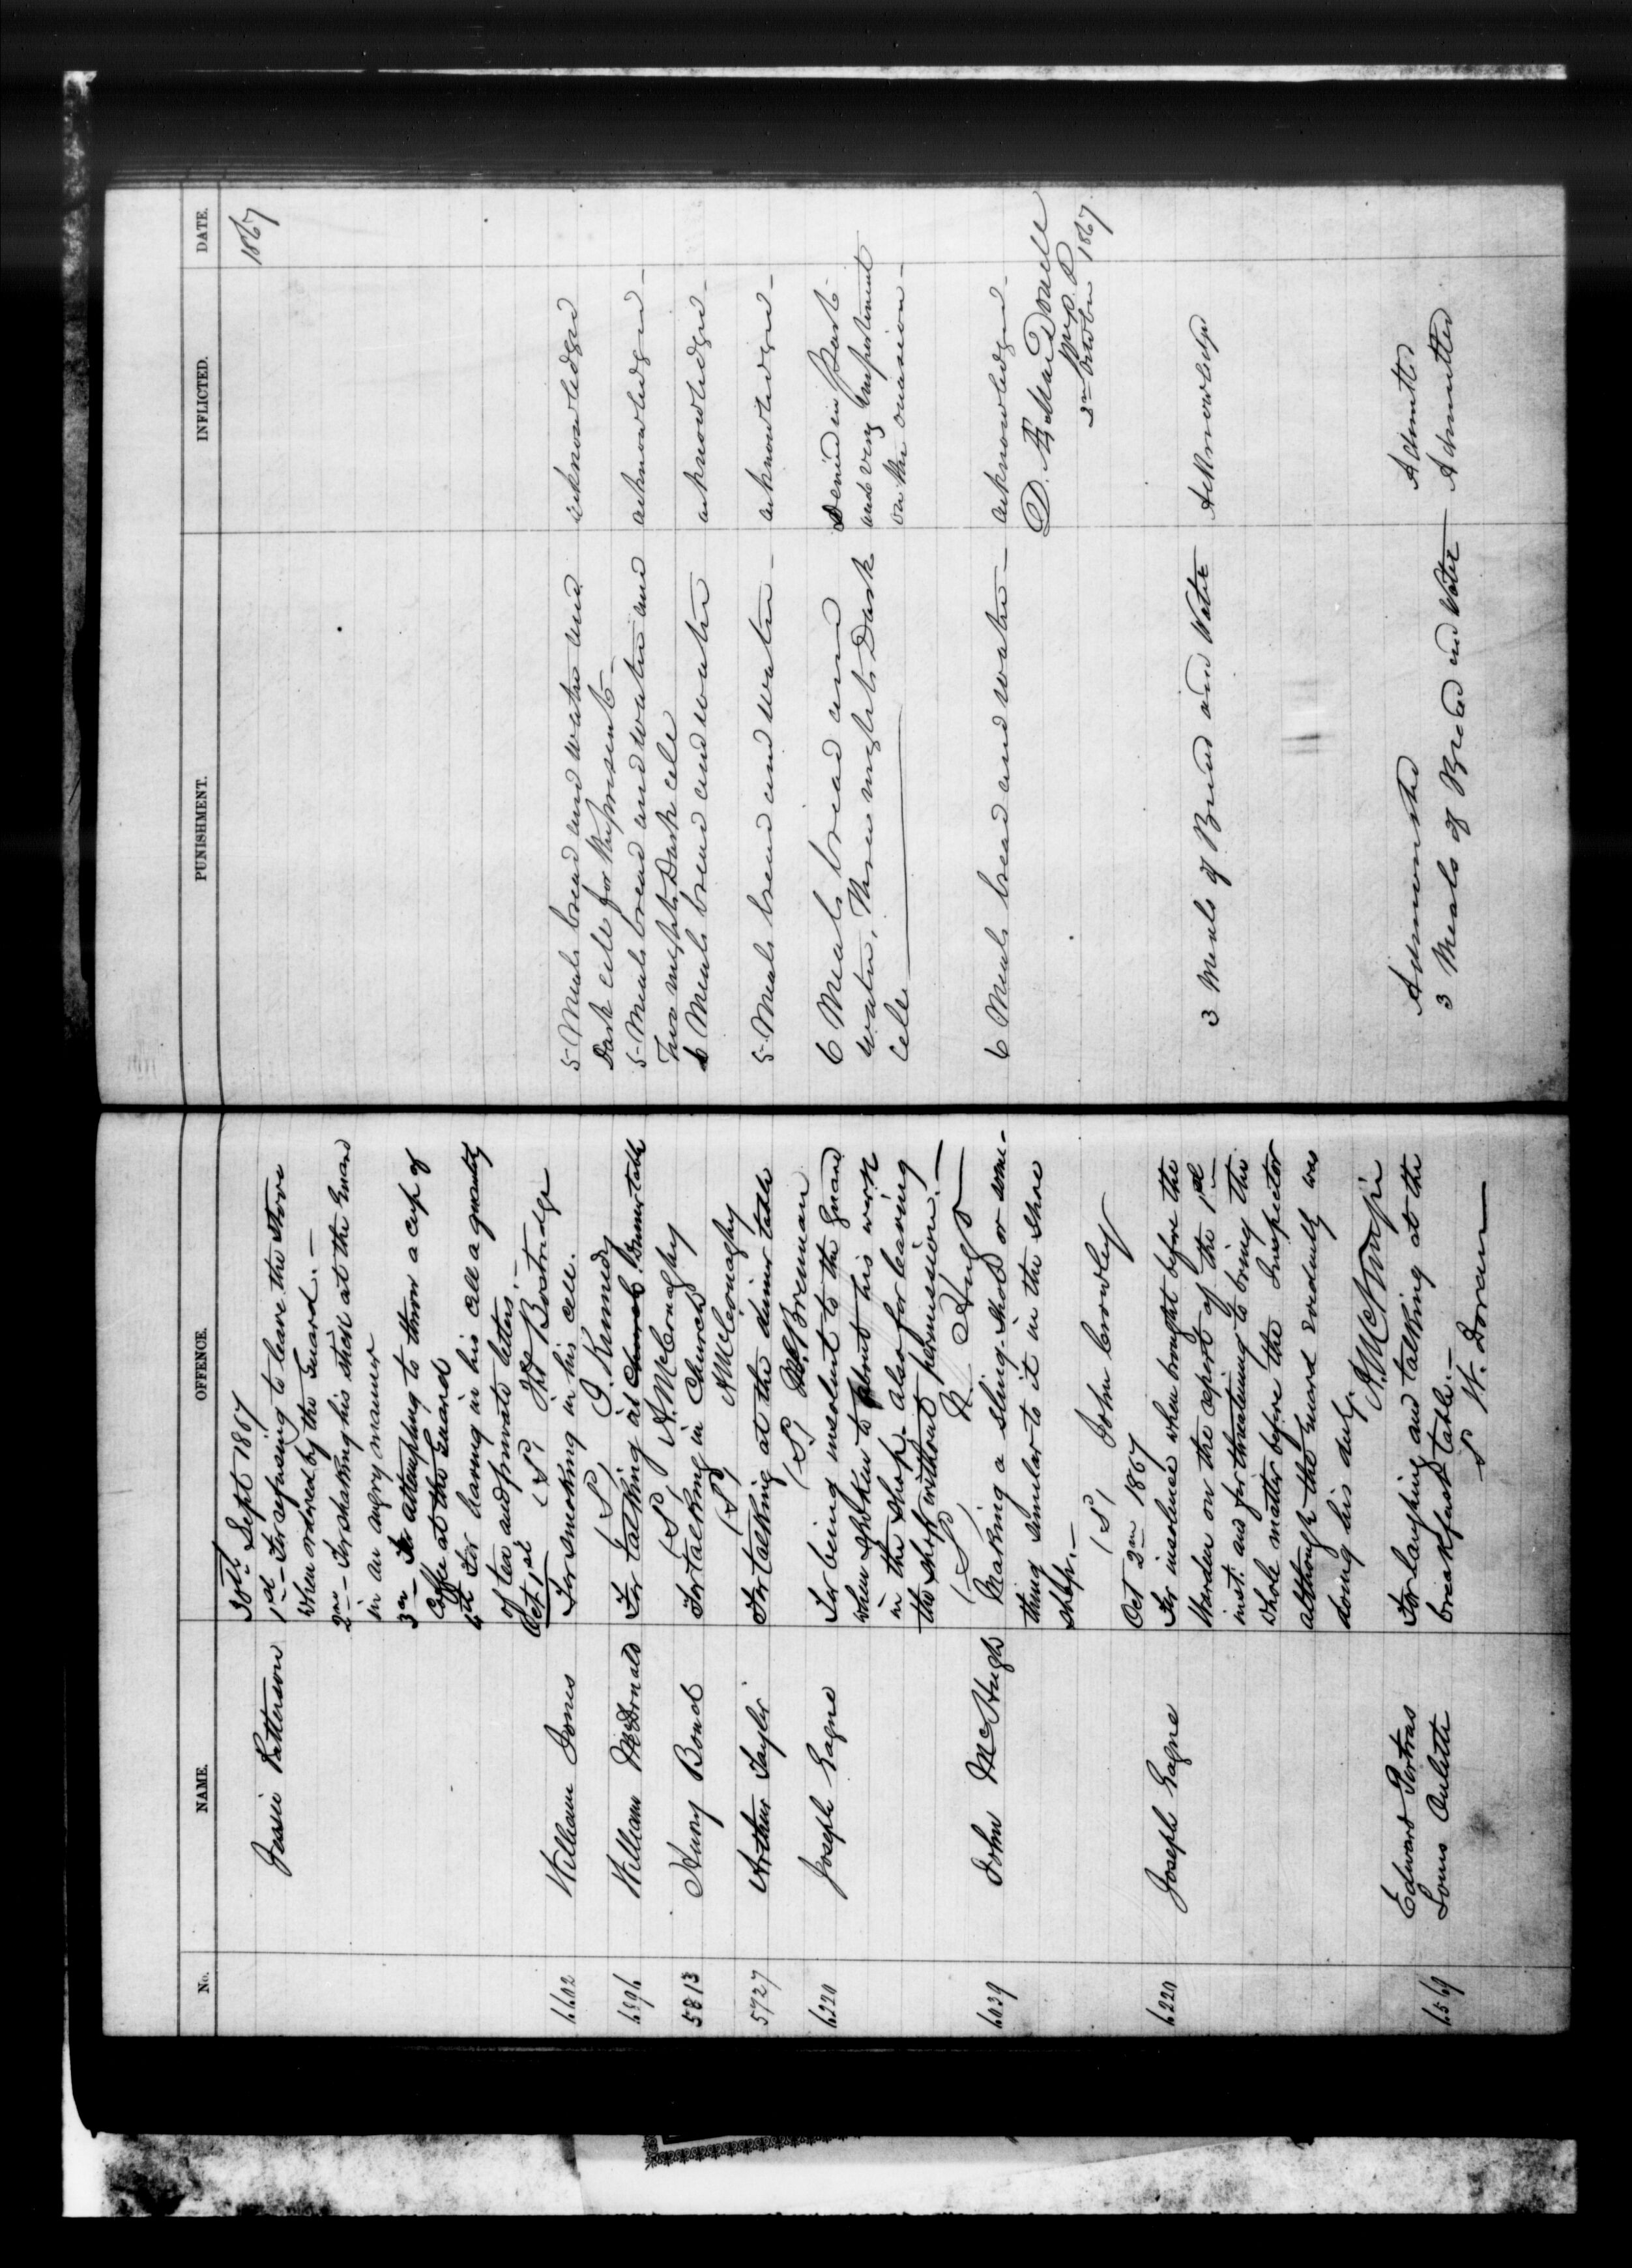 No. NAME. OFFENCE. PUNISHMENT. INFLICTED. DATE.
30th Sept 1867
1867
Jessie Patterson 1st - For refusing to leave the Stove
when ordered by the Guard. -
2nd - For shaking his stick at the Guard
in an angry manner
3rd - For attempting to throw a cup of
Coffee at the Guard
4th For having in his cell a quantity
of tea and private letters. -
(S, Thos Bostridge
Oct 1st
6602 William Jones For smoking in his cell. 5 Meals bread and water and acknowledged
(S, J. Kennedy Dark cell for the present -
6396 William McDonald For talking at Church Dinner table 5 Meals bread and water and acknowledged -
(S, A. McConaghy Two nights Dark cell
5813 Henry Bond For talking in Church 6 Meals bread and water acknowledged -
(S, A McConaghy
5727 Arthur Taylor For talking at the dinner table 5 Meals bread and water - acknowledged -
(S, M Brennan
6220 Joseph Gagne For being insolent to the Guard 6 Meals bread and Denied in Part -
when spoken to about his work water, Three nights Dark and very impertinent
in the shop. Also for leaving Cell on the occasion -
the shop without permission. -
(S, R. Hugo
6039 John McHugh Making a sling-shot or some- 6 Meals bread and water - acknowledged -
thing similar to it in the Shoe D. Æ MacDonell
shop. - W. P. P.
2nd October 1867
(S, John Crowley
Oct 2nd 1867
6220 Joseph Gagne For insolence when brought before the 3 Meals of Bread and Water Acknowledge
Warden on the report of the 1st
inst: and for threatening to bring the
whole matter before the Inspector
although the Guard evidently was
doing his duty.
A. McKenzie
Edward Portras For laughing and talking at the Admonished Admits
6569 Louis Oulette breakfast table. - 3 Meals of Bread and Water Admitted
S W. Doran